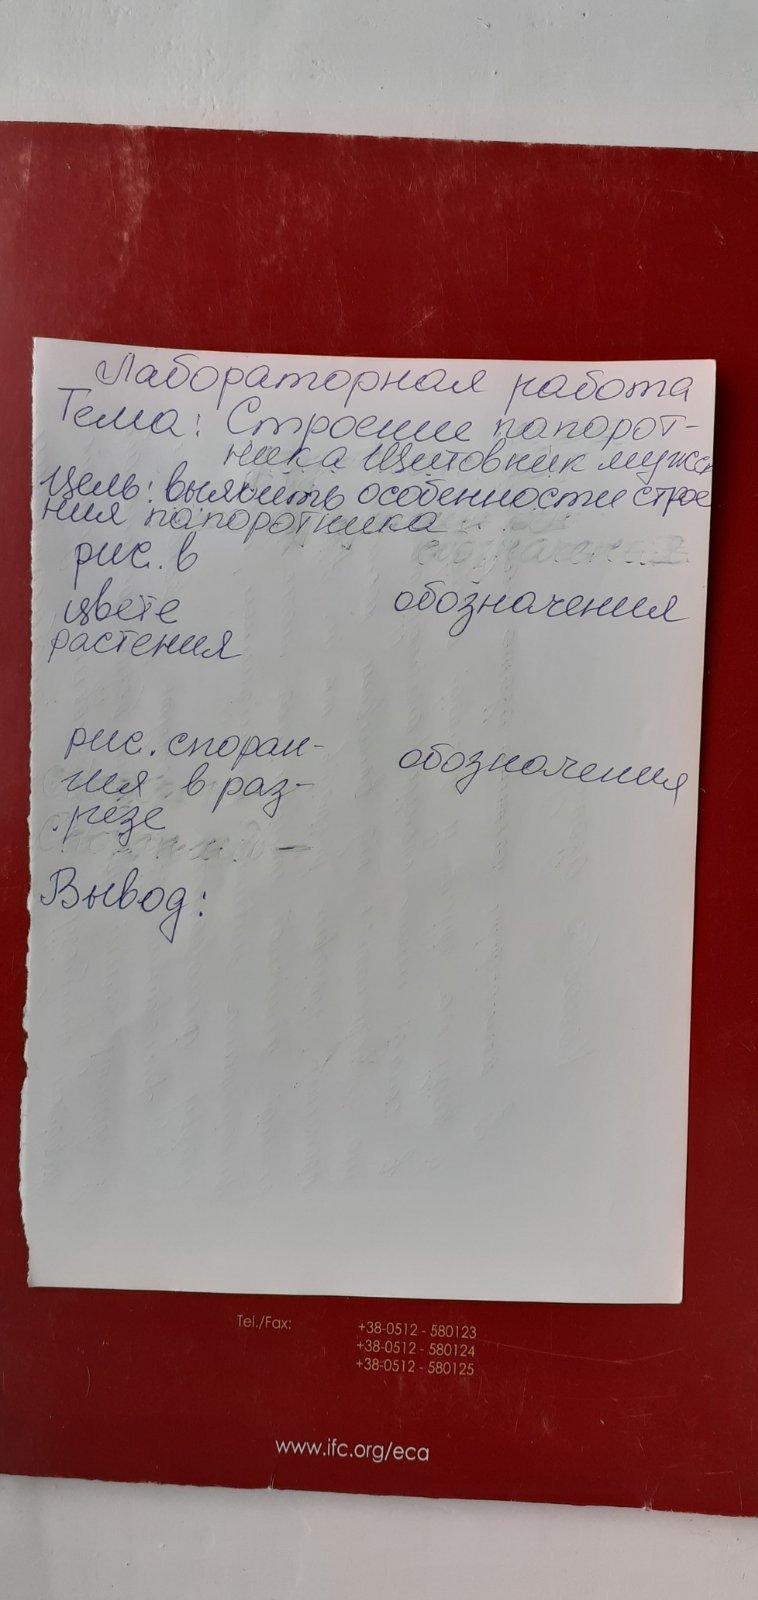 Лабораторная работа
Тема: Строение папорот-
ника Щитовник мужск
Цель: выявить особенности строе
ния папоротника
рис. в
цвете обозначения
растения
рис. споран- обозначения
гия в раз-
резе
Вывод:
Tel./Fax: +38-0512 - 580123
+38-0512 - 580124
+38-0512 - 580125
www.ifc.org/eca